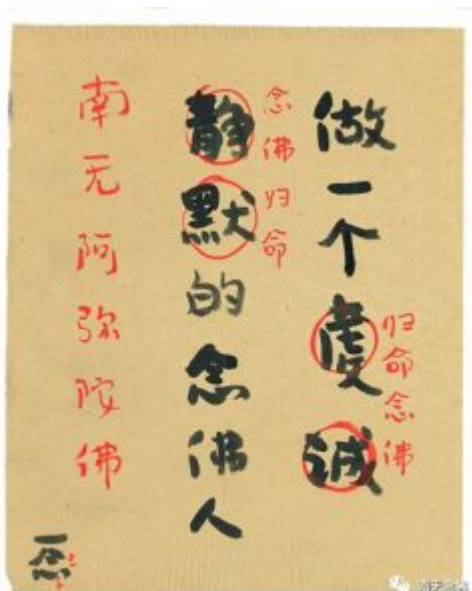 做一个虔诚
归命念佛
静默的念佛人
念佛归命
南无阿弥陀佛
一念